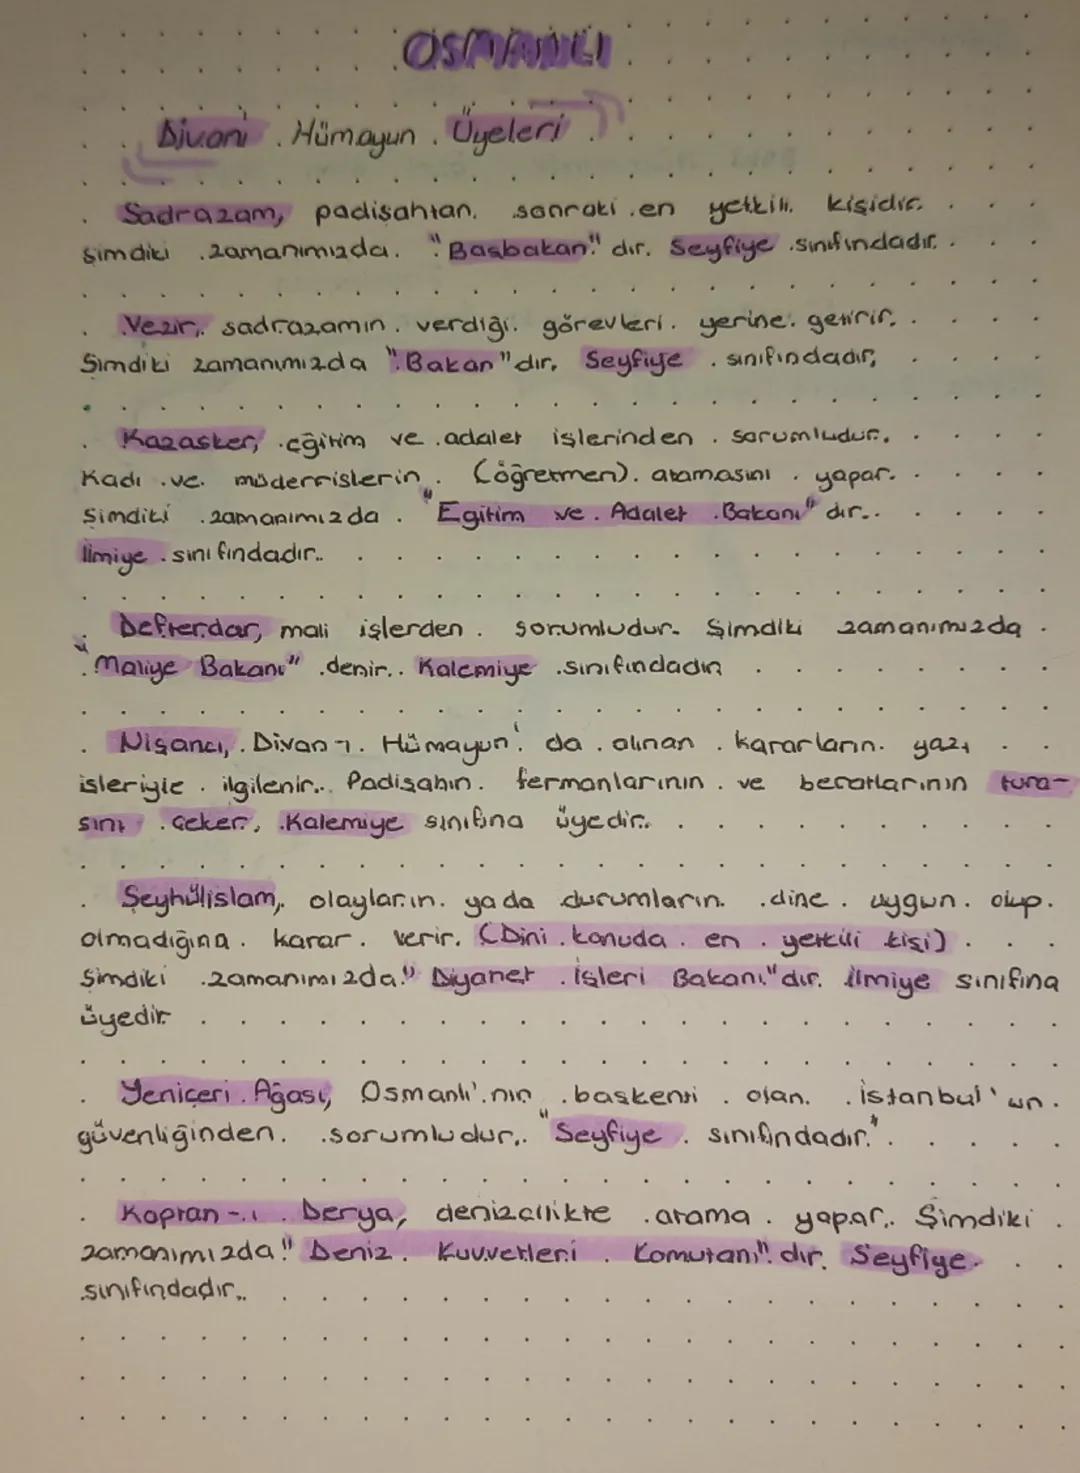 OSMANLI
Divanı Hümayun Üyeleri
Sadrazam, padişahtan sonraki en yetkili kişidir.
Şimdiki zamanımızda "Başbakan" dır. Seyfiye sınıfındadır.
Vezir, sadrazamın verdiği görevleri yerine getirir.
Şimdiki zamanımızda "Bakan" dır. Seyfiye sınıfındadır.
Kazasker, eğitim ve adalet işlerinden sorumludur.
Kadı ve müderrislerin (öğretmen) atamasını yapar.
Şimdiki zamanımızda "Egitim ve Adalet Bakanı" dır.
İlmiye sınıfındadır.
Defterdar, mali işlerden sorumludur. Şimdiki zamanımızda
"Maliye Bakanı" denir. Kalemiye sınıfındadır
Nişancı, Divan-ı Hümayun' da alınan kararların yazı
işleriyle ilgilenir. Padişahın fermanlarının ve beratlarının tura-
sını çeker, Kalemiye sınıfına üyedir.
Şeyhülislam, olayların yada durumların dine uygun olup
olmadığına karar verir. (Dini konuda en yetkili kişi)
Şimdiki zamanımızda "Diyanet İşleri Bakanı" dır. İlmiye sınıfına
üyedir
Yeniçeri Ağası, Osmanlı'nın başkenti olan İstanbul'un
güvenliğinden sorumludur. "Seyfiye sınıfındadır."
Koptan-ı Derya, denizcilikte atama yapar. Şimdiki
zamanımızda "Deniz Kuvvetleri Komutanı" dır. Seyfiye
sınıfındadır.